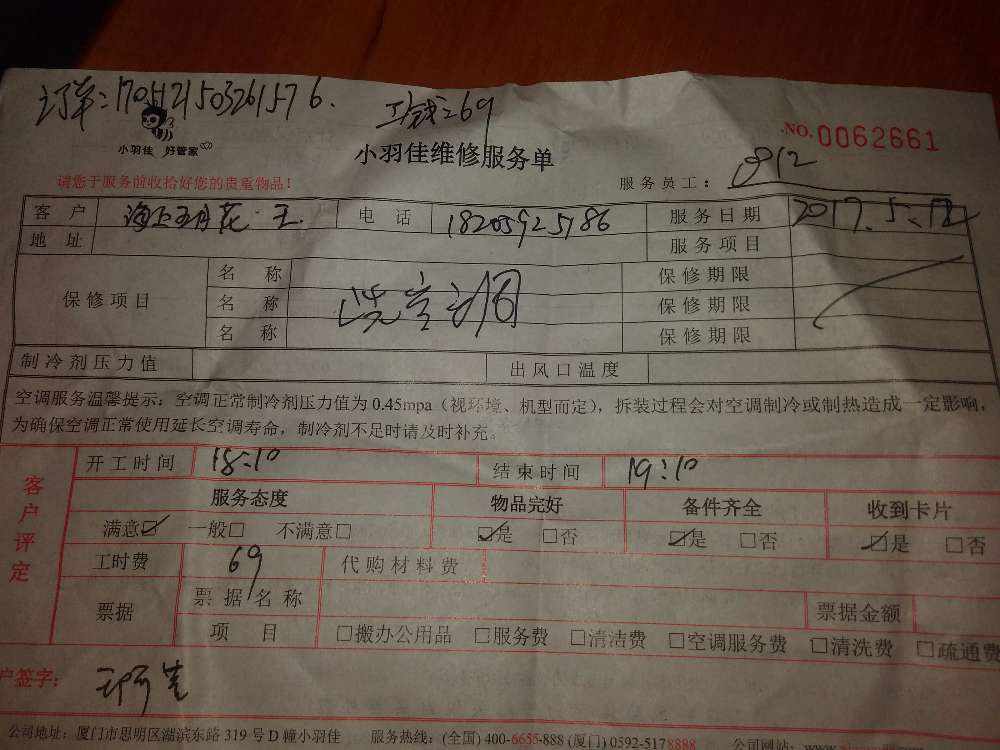 订单:1705121503261576.
工钱:69
小羽佳 好管家
NO. 0062661
小羽佳维修服务单
请您于服务前收拾好您的贵重物品!
服务员工: 0912
客户 海上五月花 王. 电话 18205925786 服务日期 2017.5.12
地址 服务项目
保修项目 名称 保修期限
名称 洗空调 保修期限
名称 保修期限
制冷剂压力值 出风口温度
空调服务温馨提示:空调正常制冷剂压力值为 0.45mpa(视环境、机型而定),拆装过程会对空调制冷或制热造成一定影响,
为确保空调正常使用延长空调寿命,制冷剂不足时请及时补充。
客户评定
开工时间 18:10 结束时间 19:10
服务态度 物品完好 备件齐全 收到卡片
满意☑ 一般□ 不满意□ ☑是 □否 ☑是 □否 ☑是 □否
工时费 69 代购材料费
票据 票据名称 票据金额
项目 □搬办公用品 □服务费 □清洁费 □空调服务费 □清洗费 □疏通费
户签字:
公司地址:厦门市思明区湖滨东路 319 号 D 幢小羽佳 服务热线:(全国) 400-6655-888 (厦门) 0592-5178888 公司网站: